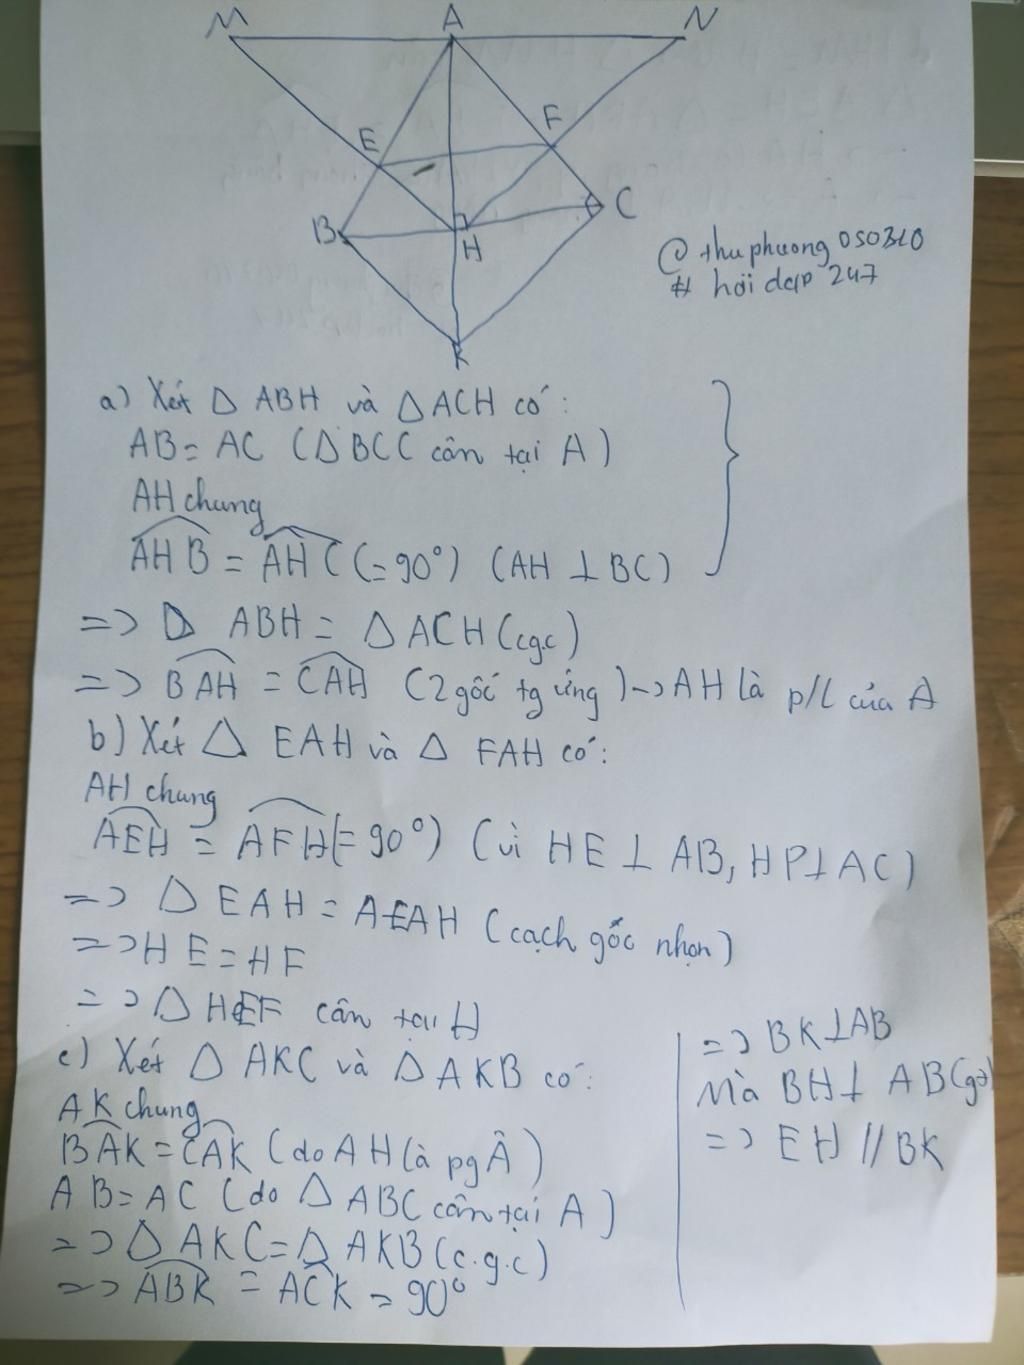 M A N
E F
B H C
K
@ thuphuong 050310
# hỏi đáp 247
a) Xét Δ ABH và Δ ACH có:
AB = AC (Δ BCC cân tại A)
AH chung
AHB = AHC (= 90°) (AH ⊥ BC)
=> Δ ABH = Δ ACH (cgc)
=> BAH = CAH (2 gốc tg ứng) -> AH là p/L của A
b) Xét Δ EAH và Δ FAH có:
AH chung
AEH = AFH (= 90°) (vì HE ⊥ AB, HP ⊥ AC)
=> Δ EAH = AFAH (cạch gốc nhọn)
=> HE = HF
=> Δ HEF cân tại H
c) Xét Δ AKC và Δ AKB có:
AK chung
BAK = CAK (do AH là pg Â)
AB = AC (do Δ ABC cân tại A)
=> Δ AKC = Δ AKB (c.g.c)
=> ABK = ACK = 90°
=> BK ⊥ AB
Mà BH ⊥ AB (gt)
=> EH // BK